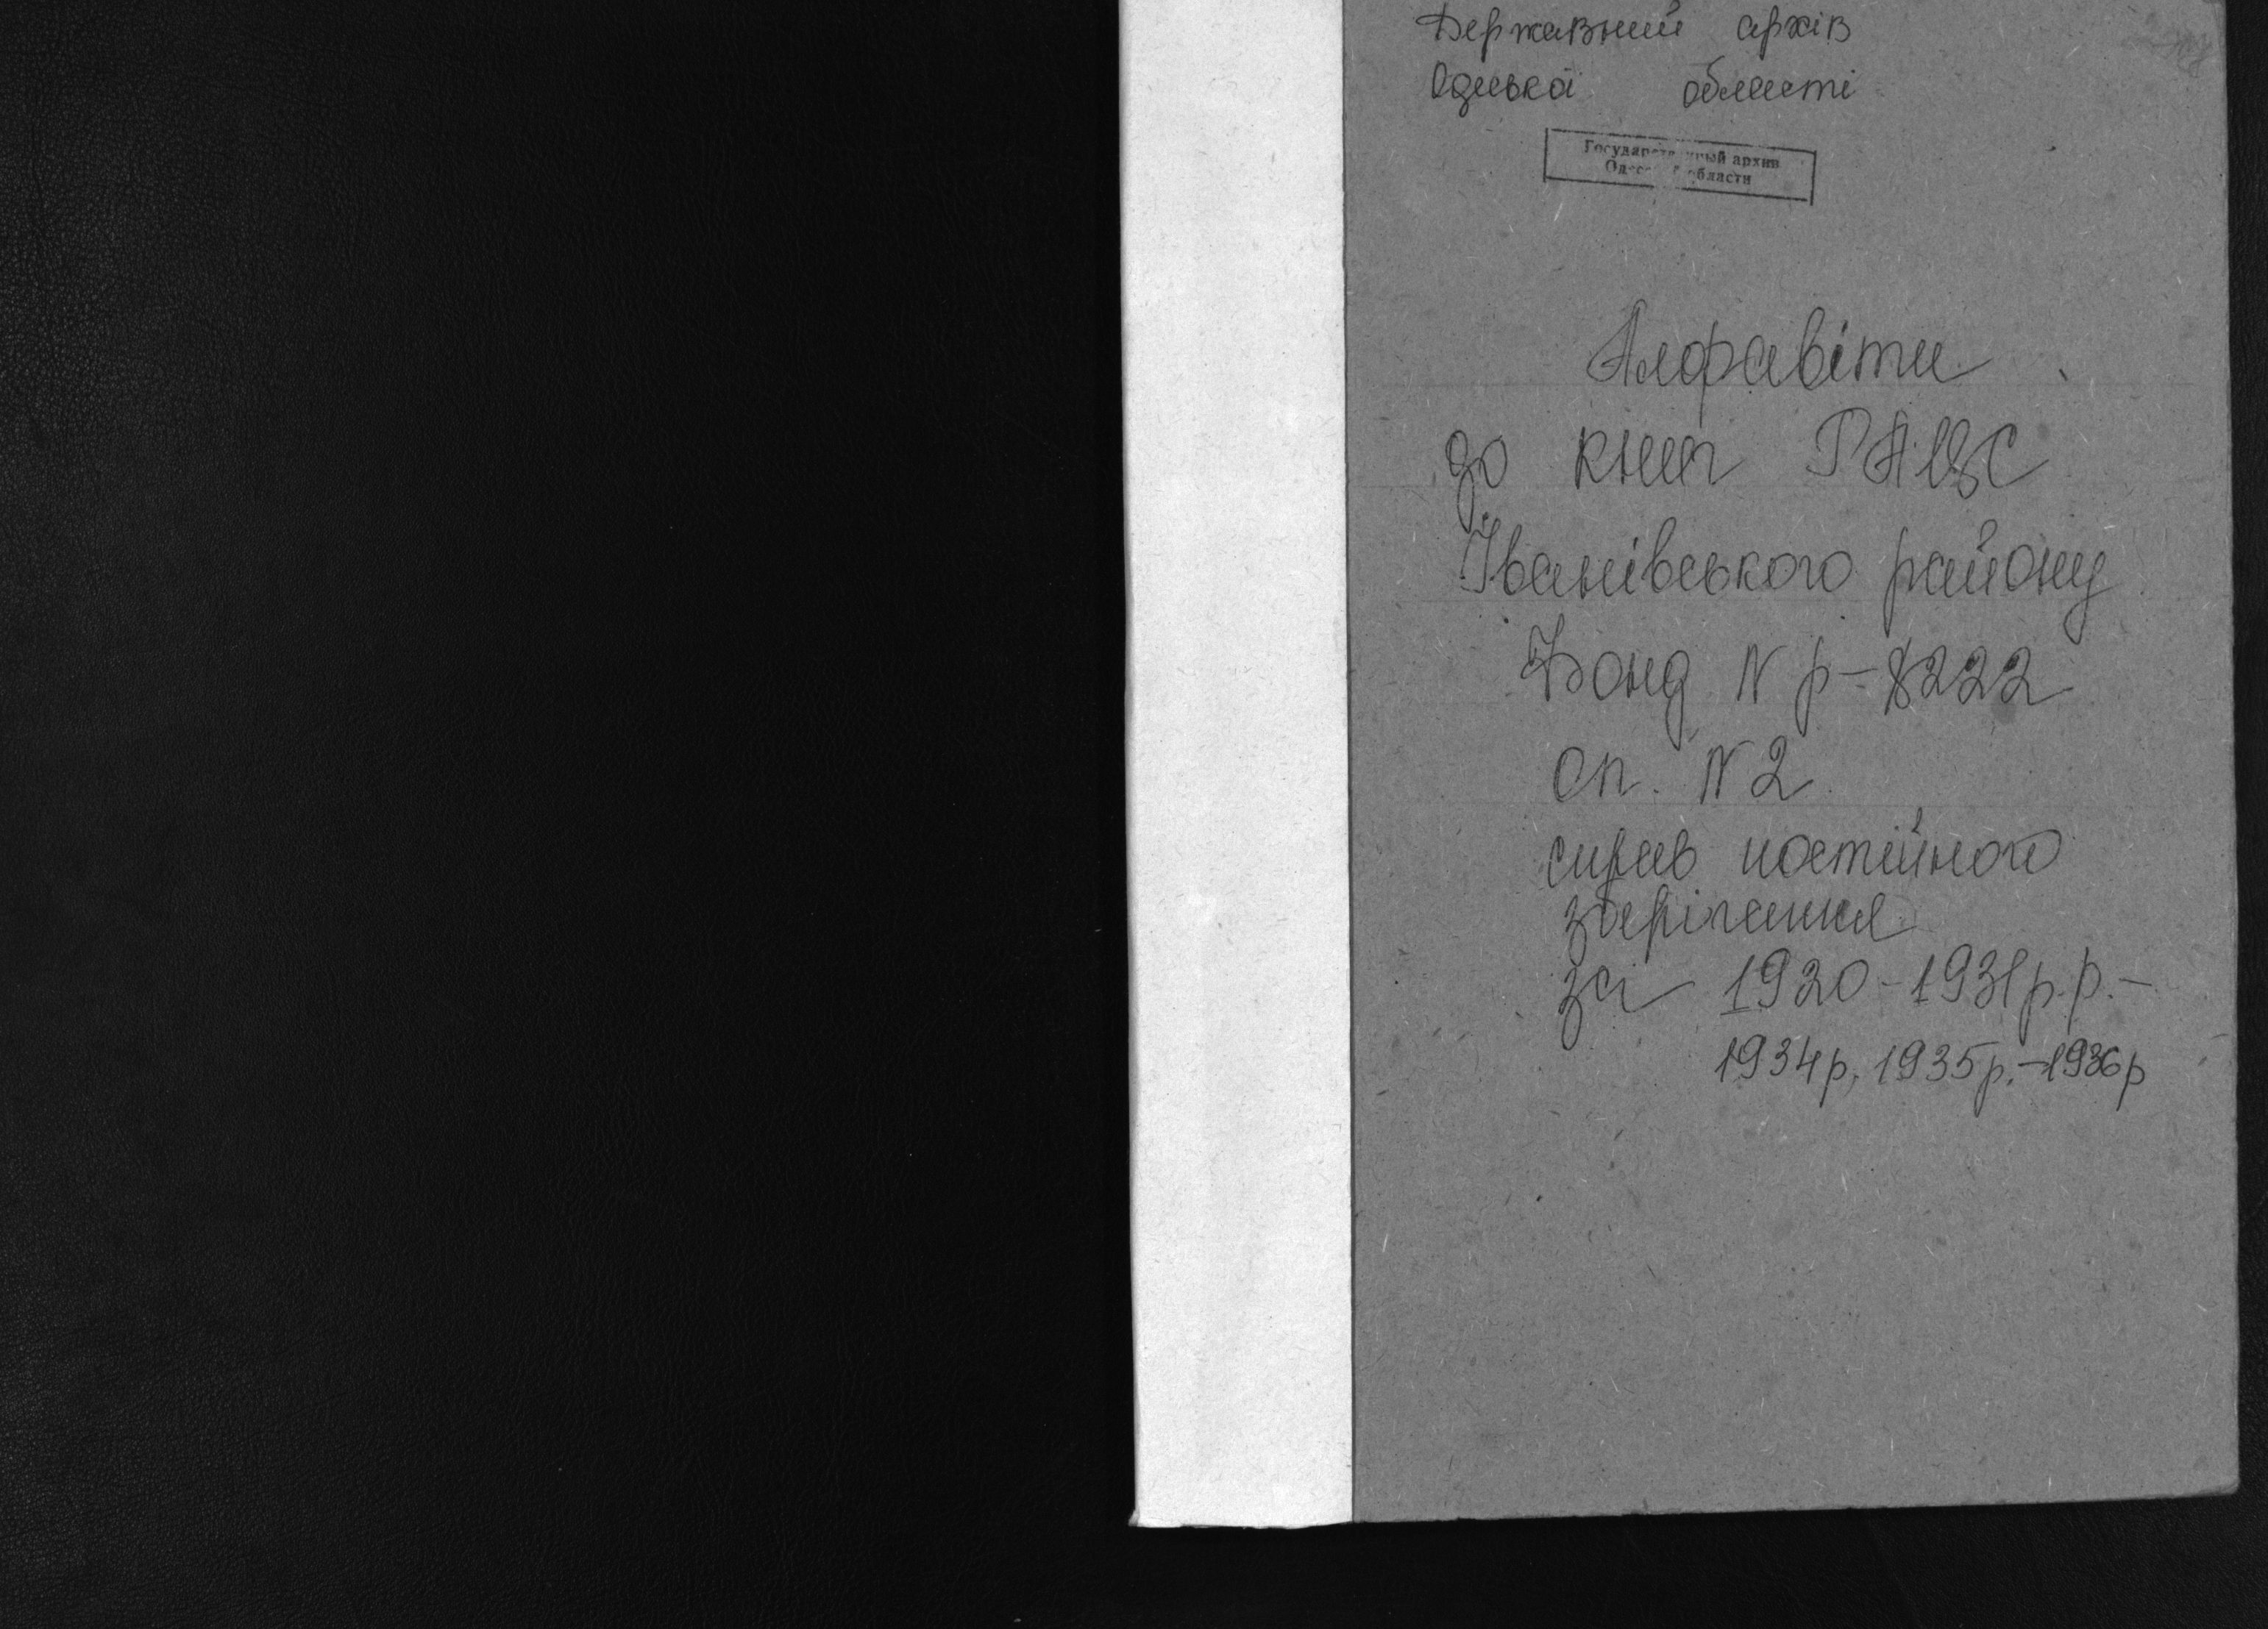 Державний архів
Одеської області
Государственный архив
Одесской области
Алфавіти
до книг РАЦС
Іванівського району
Фонд N р-8222
оп. N 2
справ постійного
зберігання
за 1920-1931 р.р.-
1934р, 1935р.-1936р